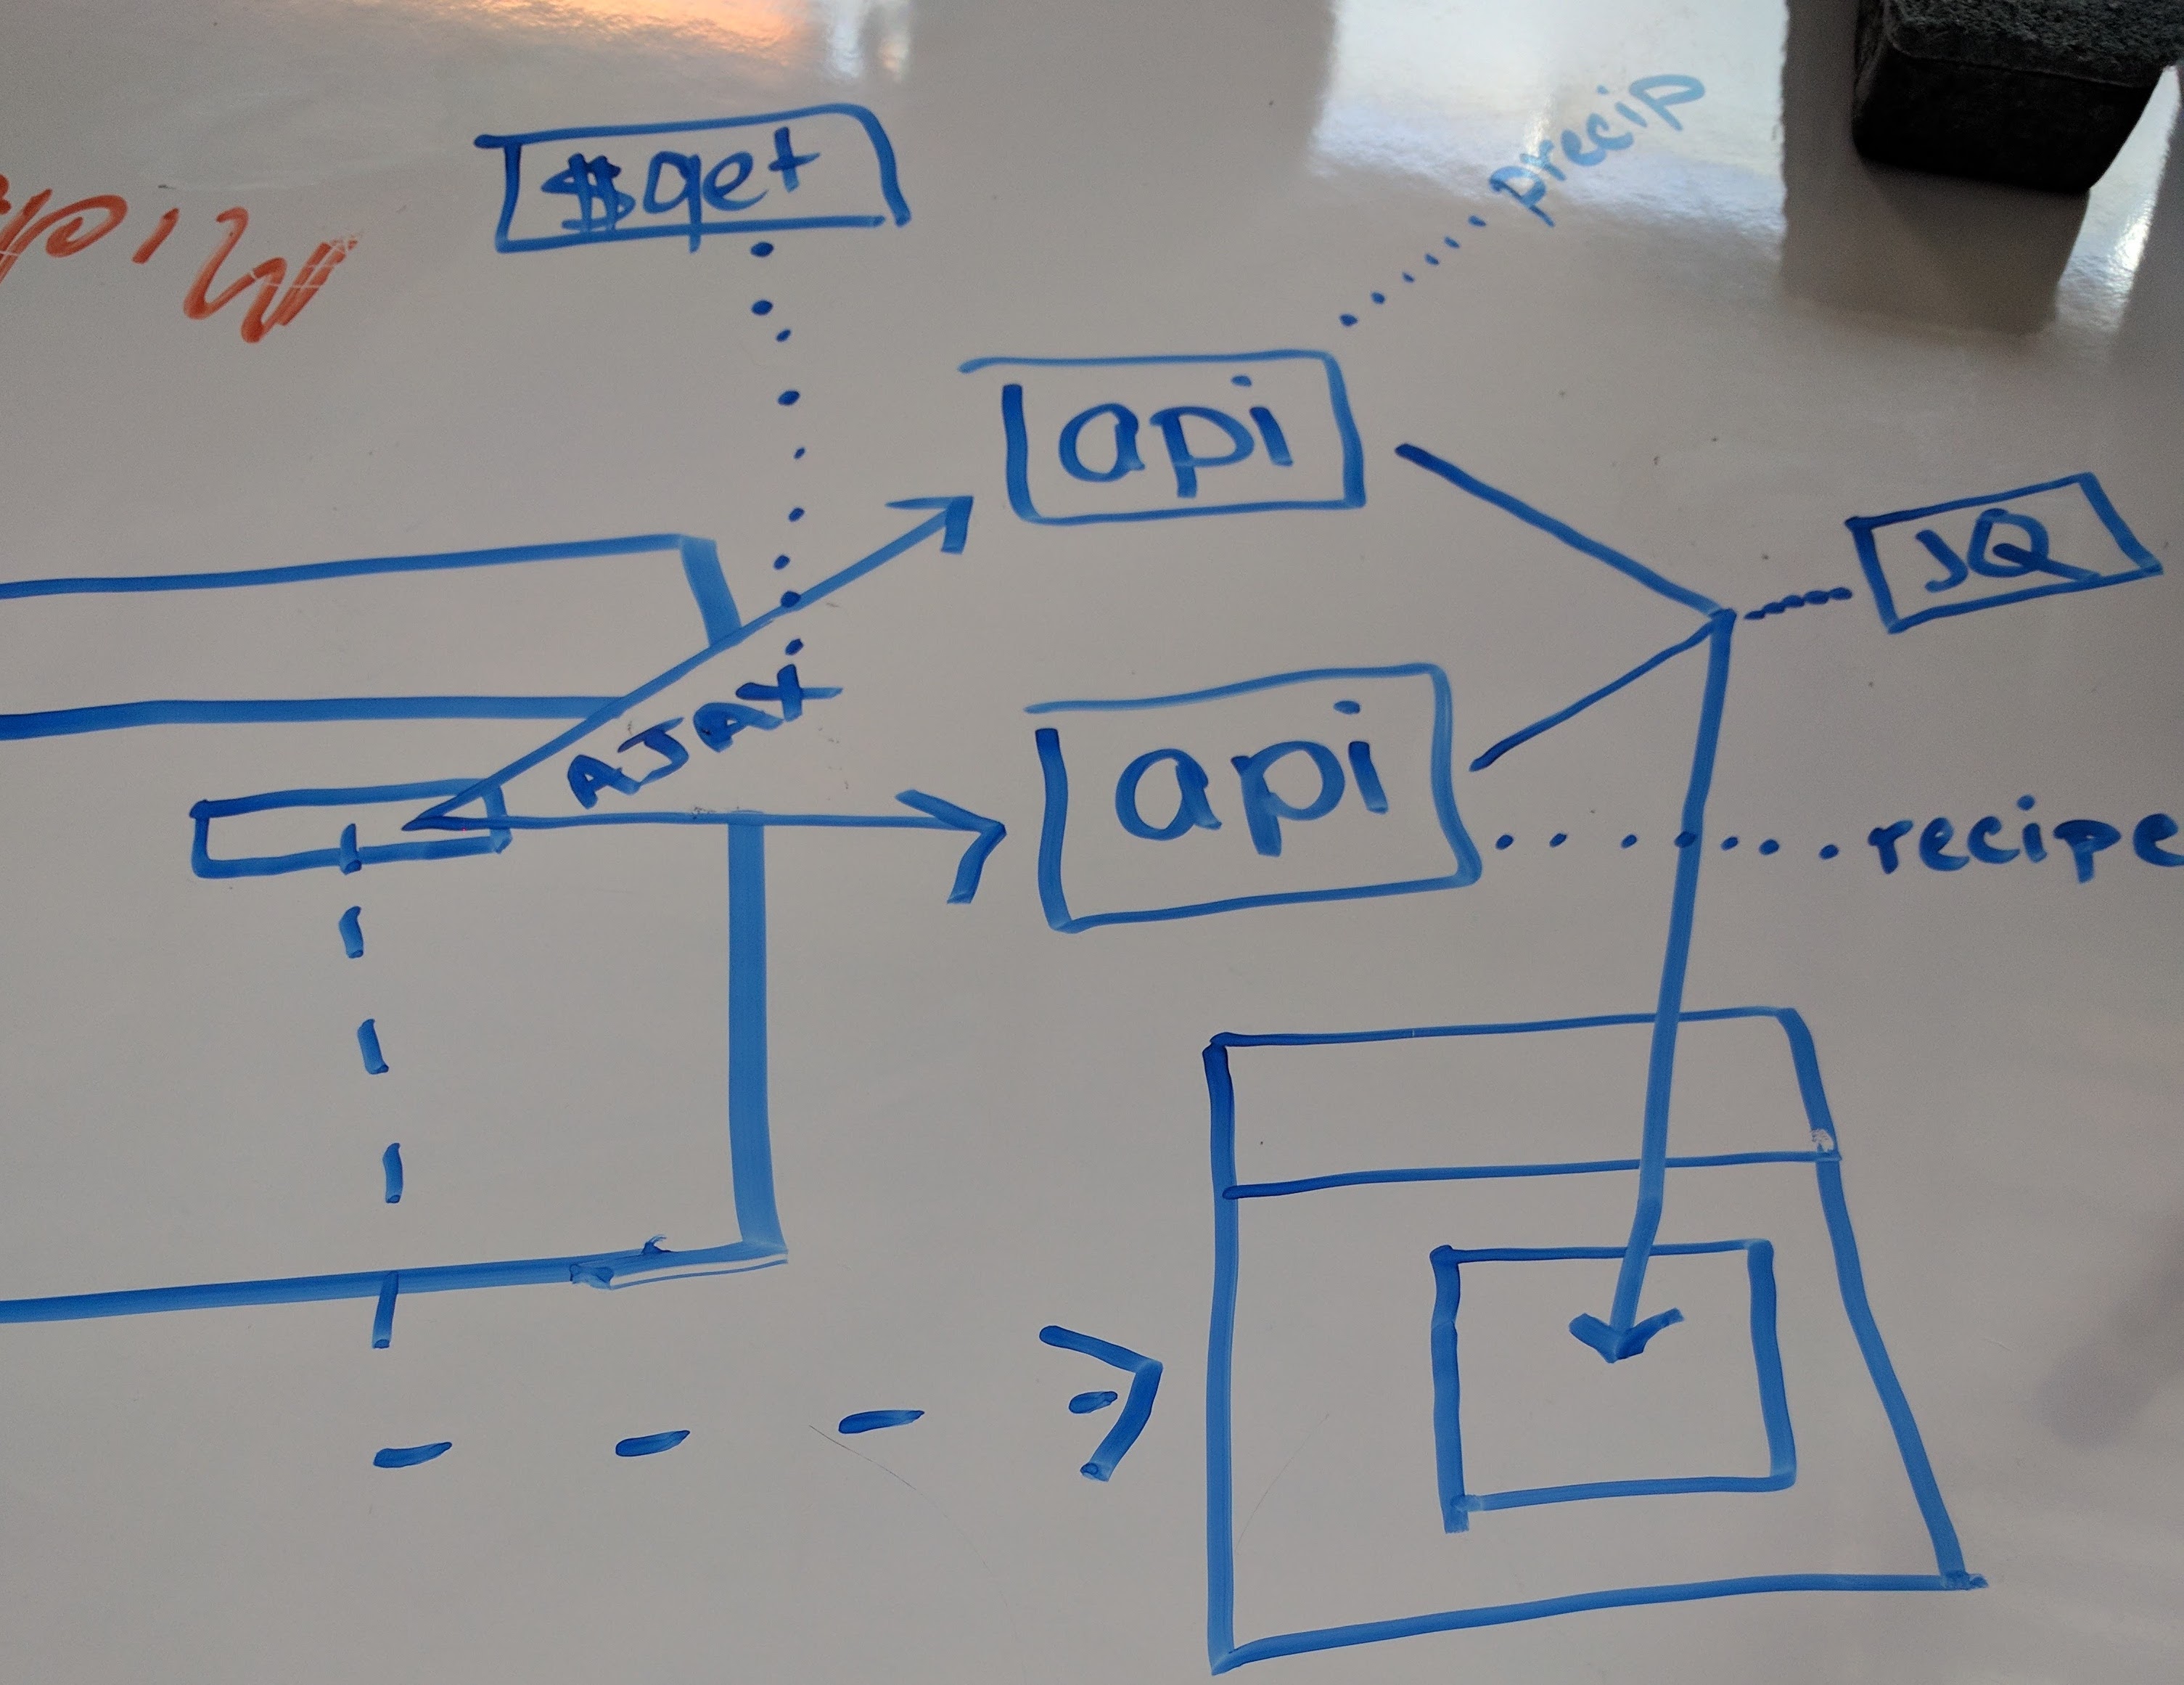 $get
precip
api
JQ
AJAX
api
recipe